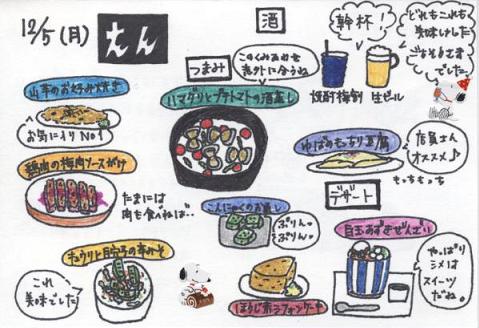 12/5(月)
えん
酒
乾杯!
どれもこれも
美味けした
ごちそうさま
でした。
つまみ
このくみあわせ
意外に合うね
焼酎梅割
生ビール
山芋のお好み焼き
お気に入りNo1
ハマグリとプチトマトの酒蒸し
ゆばのもっちり豆腐
店員さん
オススメ♪
もっちもっち
鶏肉の梅肉ソースがけ
たまには
肉を食べねば…
デザート
こんにゃくのお刺し
ぷりん。
ぷりん。
白玉あずきぜんざい
やっぱり
シメは
スイーツ
だね。
キュウリと
辛みそ
これ
美味でした
ほうじ茶シフォンケーキ